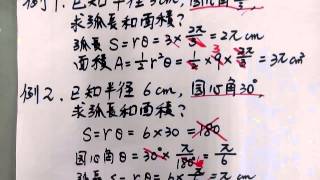 例1. 已知半徑3cm, 圓心角2π/3,
求弧長和面積?
弧長 S=rθ=3×2π/3=2π cm
面積 A=1/2r²θ=1/2×9×2π/3=3π cm²
例2. 已知半徑6cm, 圓心角30°,
求弧長和面積?
S=rθ=6×30=180
圓心角θ=30°×π/180°=π/6
弧長 S=rθ=6×π/6=π cm